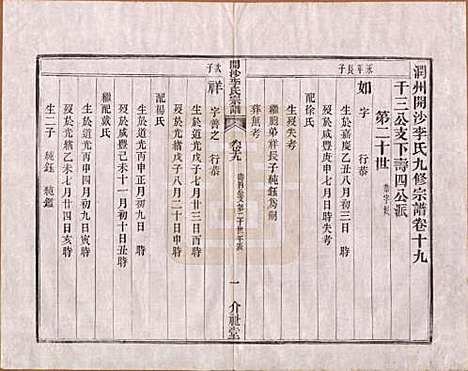 潤州開沙李氏九修宗譜卷十九
千三公支下壽四公派
第二十世 恭字派
永平長子
如 字 行恭
生於嘉慶乙丑八月初三日 時
歿於咸豐庚申 月 日時失考
配徐氏
生歿失考
繼胞弟祥長子純鈺為嗣
葬無考
開沙李氏宗譜
卷十九
一 介祉堂
次子
祥 字善之 行恭
生於道光戊子七月廿三日酉時
歿於光緒戊子八月二十日申時
配楊氏
生於道光 年 月 日 時
歿於咸豐 十一月初十日 時
繼配戴氏
生於道光乙未十二月初九日寅時
歿於光緒己亥九月廿四日亥時
生二子 純鈺 純鑑